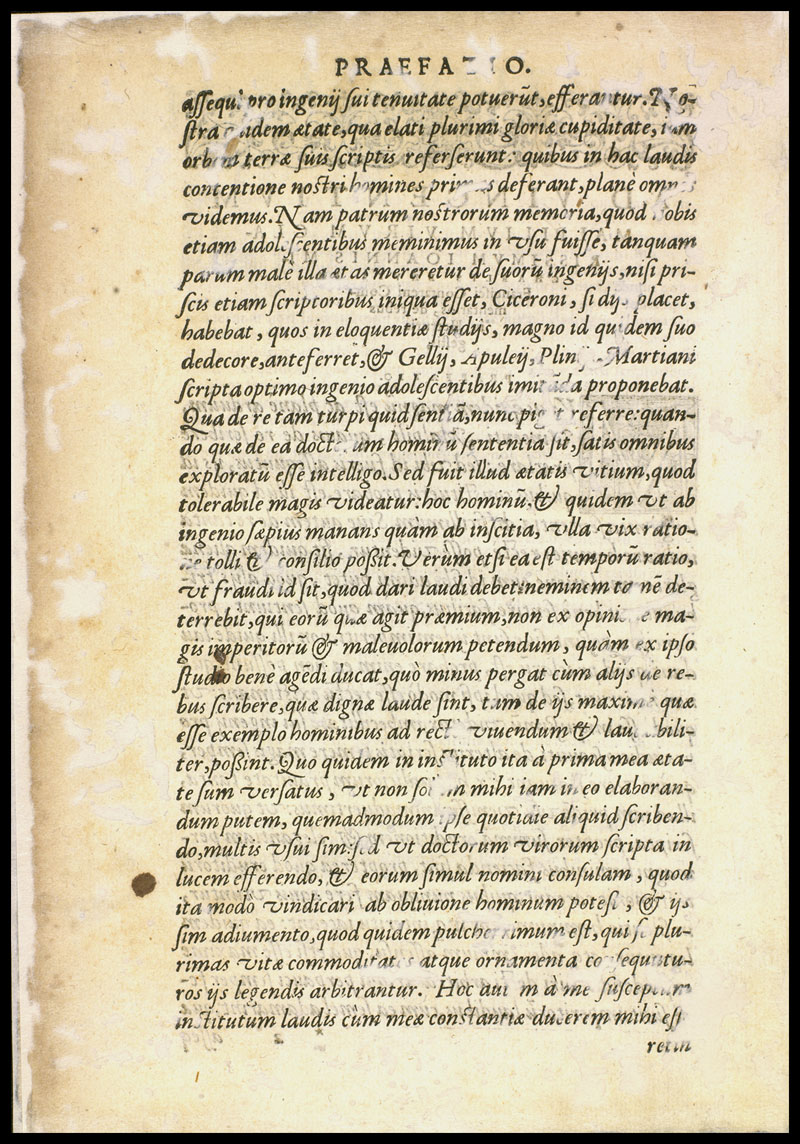 PRAEFATIO.
aſſequi pro ingenij ſui tenuitate potuerũt, efferantur. No-
ſtra quidem ætate, qua elati plurimi gloriæ cupiditate, iam
orbem terræ ſuis ſcriptis referſerunt: quibus in hac laudis
contentione noſtri homines primas deferant, planè omnes
videmus. Nam patrum noſtrorum memoria, quod nobis
etiam adoleſcentibus meminimus in vſu fuiſſe, tanquam
parum malè illa ætas mereretur de ſuorũ ingenijs, niſi pri-
ſcis etiam ſcriptoribus iniqua eſſet, Ciceroni, ſi dijs placet,
habebat, quos in eloquentiæ ſtudijs, magno id quidem ſuo
dedecore, anteferret, & Gellij, Apuleij, Plinij Martiani
ſcripta optimo ingenio adoleſcentibus imitãda proponebat.
Qua de re tam turpi quid ſentiã, nunc piget referre: quan-
do quæ de ea doctorum hominũ ſententia ſit, ſatis omnibus
exploratũ eſſe intelligo. Sed fuit illud ætatis vitium, quod
tolerabile magis videatur: hoc hominũ, & quidem vt ab
ingenio ſæpius manans quàm ab inſcitia, vlla vix ratio-
ne tolli & conſilio poßit. Verùm etſi ea eſt temporũ ratio,
vt fraudi id ſit, quod dari laudi debet: neminem tamẽ de-
terrebit, qui eorũ quæ agit præmium, non ex opinione ma-
gis imperitorũ & maleuolorum petendum, quàm ex ipſo
ſtudio benè agẽdi ducat, quò minus pergat cùm alijs de re-
bus ſcribere, quæ dignæ laude ſint, tum de ijs maximè quæ
eſſe exemplo hominibus ad rectè viuendum & laudabili-
ter, poßint. Quo quidem in inſtituto ita à prima mea æta-
te ſum verſatus, vt non ſolum mihi iam in eo elaboran-
dum putem, quemadmodum ipſe quotidie aliquid ſcriben-
do, multis vſui ſim: ſed vt doctorum virorum ſcripta in
lucem efferendo, & eorum ſimul nomini conſulam, quod
ita modo vindicari ab obliuione hominum poteſt, & ijs
ſim adiumento, quod quidem pulcherrimum eſt, qui ſe plu-
rimas vitæ commoditates atque ornamenta conſequutu-
ros ijs legendis arbitrantur. Hoc autem à me ſuſceptum
inſtitutum laudis cùm meæ conſtantiæ ducerem mihi eſſe
retin